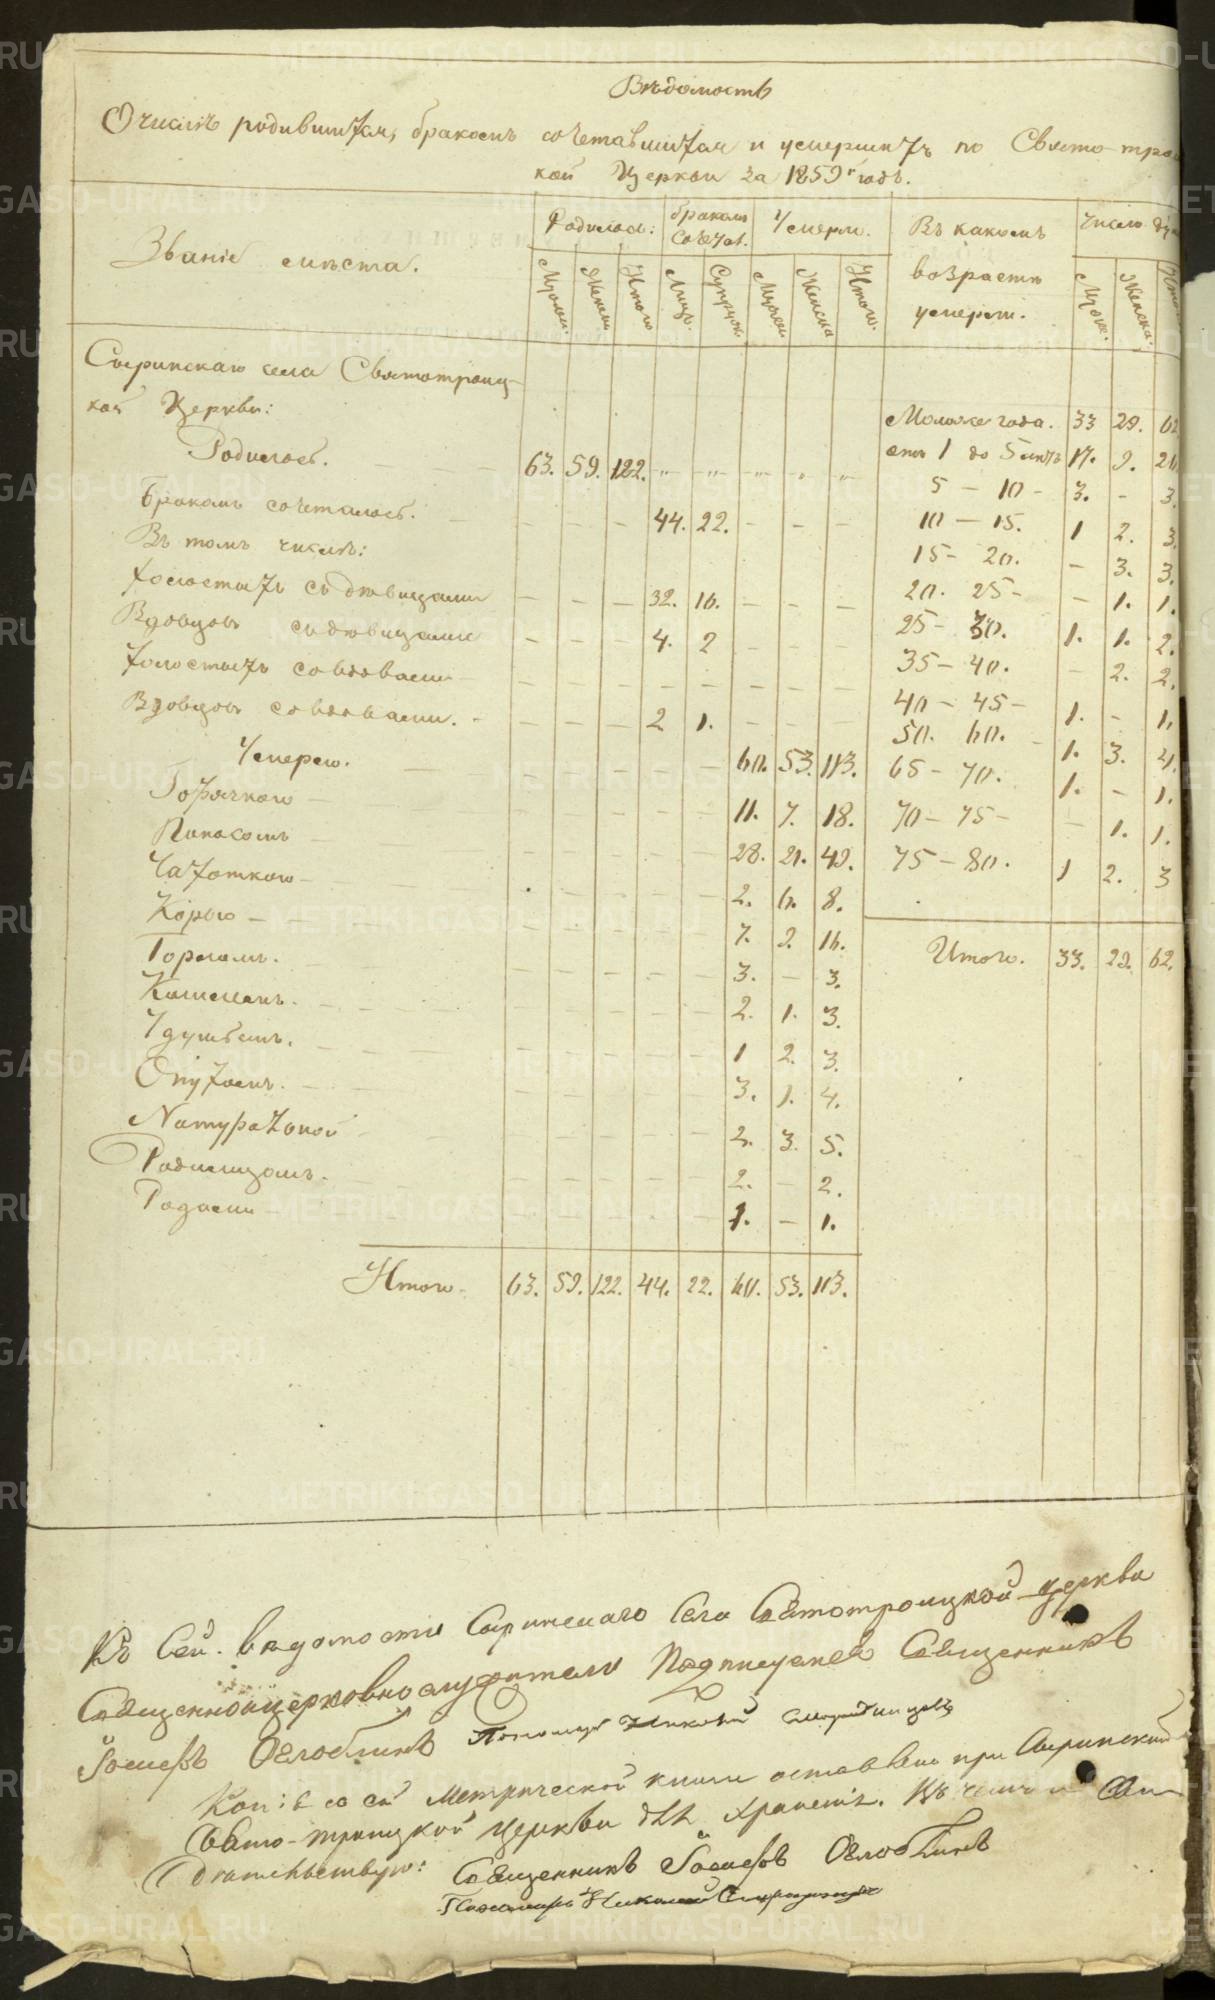 Вѣдомость
О числѣ родившихся, бракомъ сочетавшихся и умершихъ по Свято-трои
кой Церкви за 1859 годъ.
Званіе мѣста. Родилось: бракомъ Сочет. Умерло. Въ какомъ возрастѣ умерли. Число ду
Мужск. Женск. Итого Лицъ. Супруж. Мужск. Женска Итого. Мужс. Женска.
Сыринскаго села Святотроиц-
кой Церкви:
Младже года. 33 29. 62
Родилось. 63. 59. 122. отъ 1 до 5 лѣтъ 17. 9. 26
5 — 10 - 3. - 3.
Бракомъ сочеталось. 44. 22. 10 — 15. 1 2. 3.
Въ томъ числѣ: 15 - 20. - 3. 3.
Холостыхъ съ дѣвицами 32. 16. 20. 25 - - 1. 1.
Вдовцовъ съ дѣвицами 4. 2 25 - 30. 1. 1. 2.
Холостыхъ со вдовами 35 - 40. - 2. 2.
Вдовцовъ со вдовами. 2 1. 40 - 45 - 1. - 1.
50. 60. 1. 3. 4.
Умерло. 60. 53. 113. 65 - 70. 1. - 1.
Горячкою 11. 7. 18. 70 - 75 - - 1. 1.
Поносомъ 28. 21. 49. 75 - 80. 1 2. 3
Чахоткою 2. 6. 8.
Корью 7. 9. 16. Итого. 33. 29. 62.
Горломъ. 3. - 3.
Кашлемъ. 2. 1. 3.
Удушьемъ. 1 2. 3.
Опухомъ. 3. 1. 4.
Натуральной 2. 3. 5.
Родимцомъ. 2. - 2.
Родами 1. - 1.
Итого. 63. 59. 122. 44. 22. 60. 53. 113.
Къ Сей вѣдомости Сыринскаго Села Святотроицкой церкви
Священноицерковнослужители Подписуемся Священникъ
Іосифъ Оглоблинъ Пономарь Николай
Копія со сей Метрической книги оставлена при Сыринской
Свято-троицкой Церкви для храненія. Въ чемъ и
Священникъ Іосифъ Оглоблинъ
Пономарь Николай
METRIKI.GASO-URAL.RU